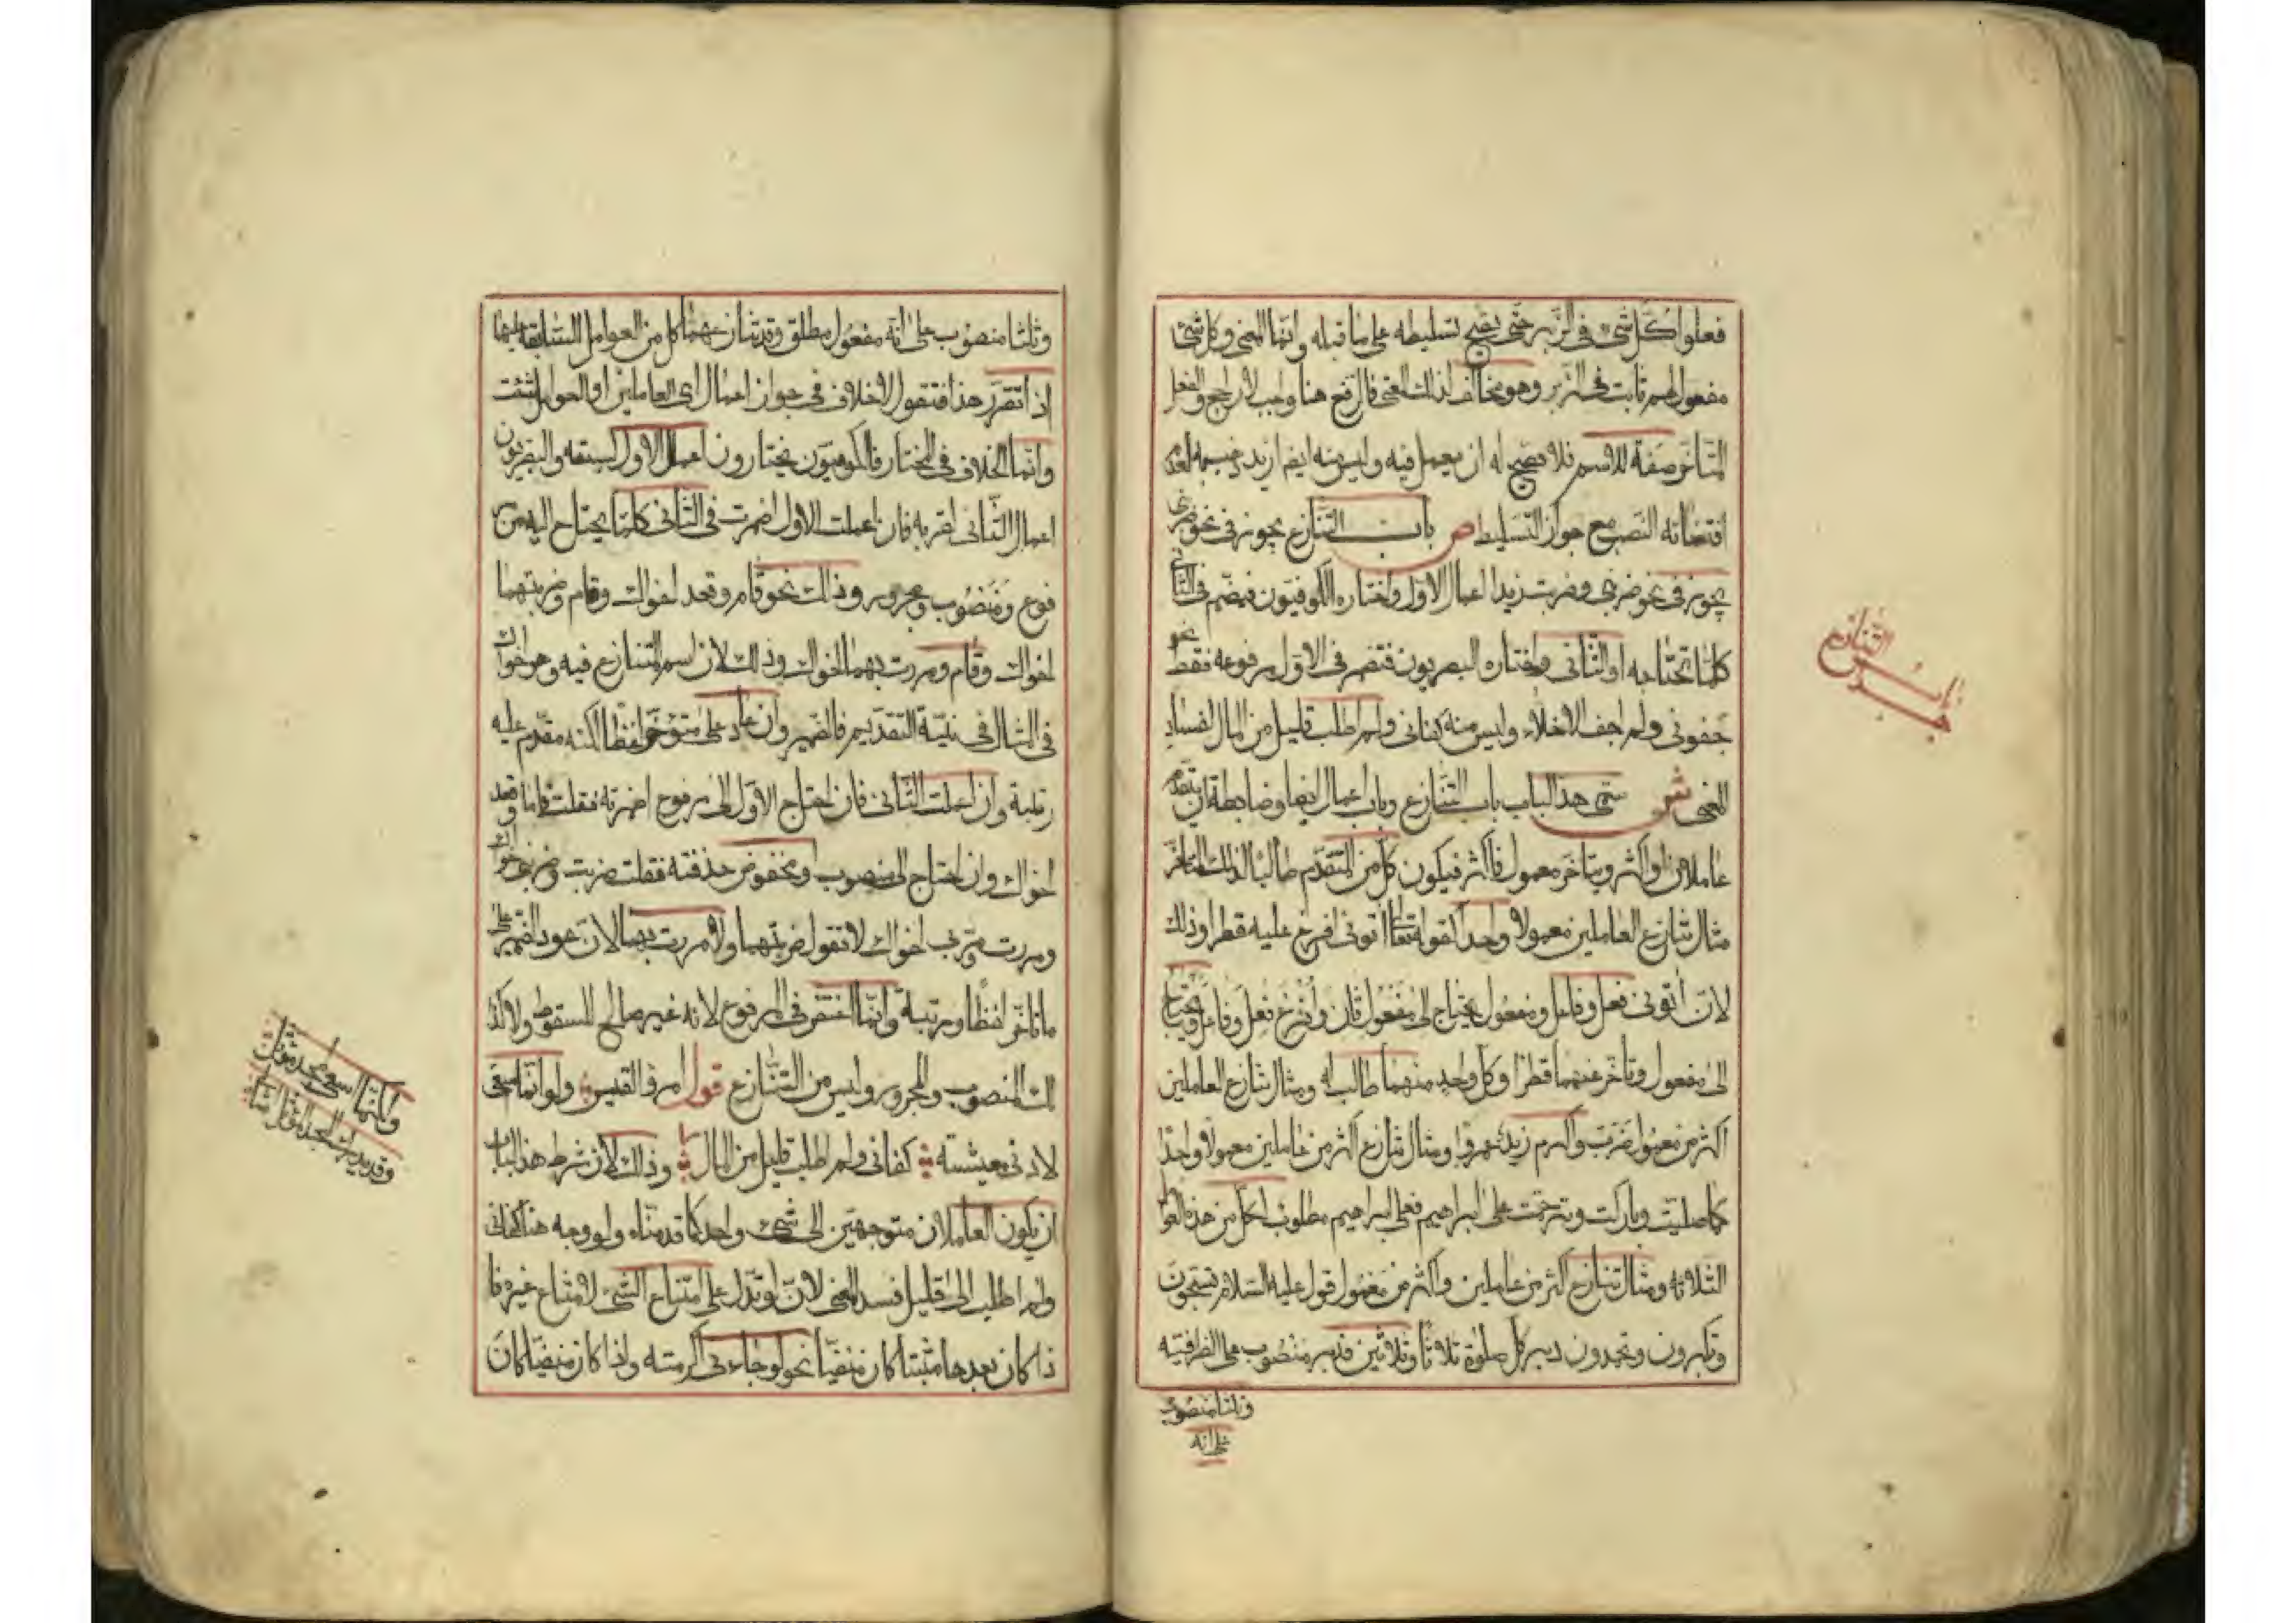 فعلوا كل شئ فى الزبر حتى يصح تسليطه على ما قبله وانما المعنى وكل شئ
مفعول لهم ثابت فى الزبر وهو مخالف لذلك المعنى فالرفع هنا واجب لا راجح والفعل
المتأخر صفة للاسم فلا يصح له ان يعمل فيه وليس منه ايضا ازيد ذهب به لعدم
اقتضائه النصب مع جواز التسليط ص باب التنازع يجوز فى نحو ضربنى
يجوز فى نحو ضربنى وضربت زيدا اعمال الاول واختاره الكوفيون فيضمر فى الثانى
كلما تحتاجه او الثانى واختاره البصريون فتضمر فى الاول مرفوعه فقط نحو
جفونى ولم اجف الاخلاء وليس منه كفانى ولم اطلب قليل من المال لفساد
المعنى ش سمى هذا الباب باب التنازع وباب اعمال ايضا وضابطه ان يتقدم
عاملان او اكثر ويتأخر معمول فاكثر فيكون كل من المتقدم طالبا لذلك المتأخر
مثال تنازع العاملين معمولا واحدا كقوله تعالى اتونى افرغ عليه قطرا وذلك
لان اتونى فعل وفاعل ومفعول يحتاج الى مفعول ثان وأفرغ فعل وفاعل ويحتاج
الى مفعول وتأخر عنهما قطرا وكل واحد منهما طالب له ومثال تنازع العاملين
اكثر من معمول ضرب واكرم زيد عمروا ومثال تنازع اكثر من عاملين معمولا واحدا
كما صليت وباركت وترحمت على ابراهيم فعلى ابراهيم مطلوب لكل من هذه العوامل
الثلاثة ومثال تنازع اكثر من عاملين واكثر من معمول قول عليه السلام تسبحون
وتكبرون وتحمدون دبر كل صلوة ثلاثا وثلاثين فدبر منصوب على الظرفية
وثلثا منصوب
على انه
التنازع
باب
وثلثا منصوب على انه مفعول مطلق وقد تنازعهما كل من العوامل السابقة عليهما
اذا تقرر هذا فنقول لا خلاف فى جواز اعمال اى العاملين او العوامل شئت
وانما الخلاف فى المختار فالكوفيون يختارون اعمال الاول لسبقه والبصريون
اعمال الثانى لقربه فان اعملت الاول اضمرت فى الثانى كلما يحتاج اليه من مر
فوع ومنصوب ومجرور وذلك نحو قام وقعد اخواك وقام وضربتهما
اخواك وقام ومررت بهما اخواك وذلك لان اسم المتنازع فيه وهو اخواك
فى المثال فى نية التقديم فالضمير وان عاد على متوخر لفظا لكنه مقدم عليه
رتبة وان اعملت الثانى فان احتاج الاول الى مرفوع اضمرته فقلت قاما وقعد
اخواك وان احتاج الى منصوب او مخفوض حذفته فقلت ضربت وضربنى اخواك
ومررت ومر بى اخواك لا تقول ضربتهما ولا مررت بهما لان عود الضمير على
ما تأخر لفظا ورتبة وانما اغتفر فى المرفوع لانه غير صالح للسقوط ولا كذ
لك المنصوب والمجرور وليس من التنازع قول امرؤ القيس ولو انما اسعى
لادنى معيشته كفانى ولم اطلب قليل من المال وذلك لان شرط هذا الباب
ان يكون العاملان متوجهين الى شئ واحد كما قدمناه ولو وجه هنا كفانى
ولم اطلب الى قليل فسد المعنى لان لو تدل على امتناع الشئ لامتناع غيره فا
ذا كان بعدها مثبتا كان منفيا نحو لو جاءنى اكرمته واذا كان منفيا كان
ولكنما اسعى لمجد مؤثل
وقد يدرك المجد المؤثل امثالى